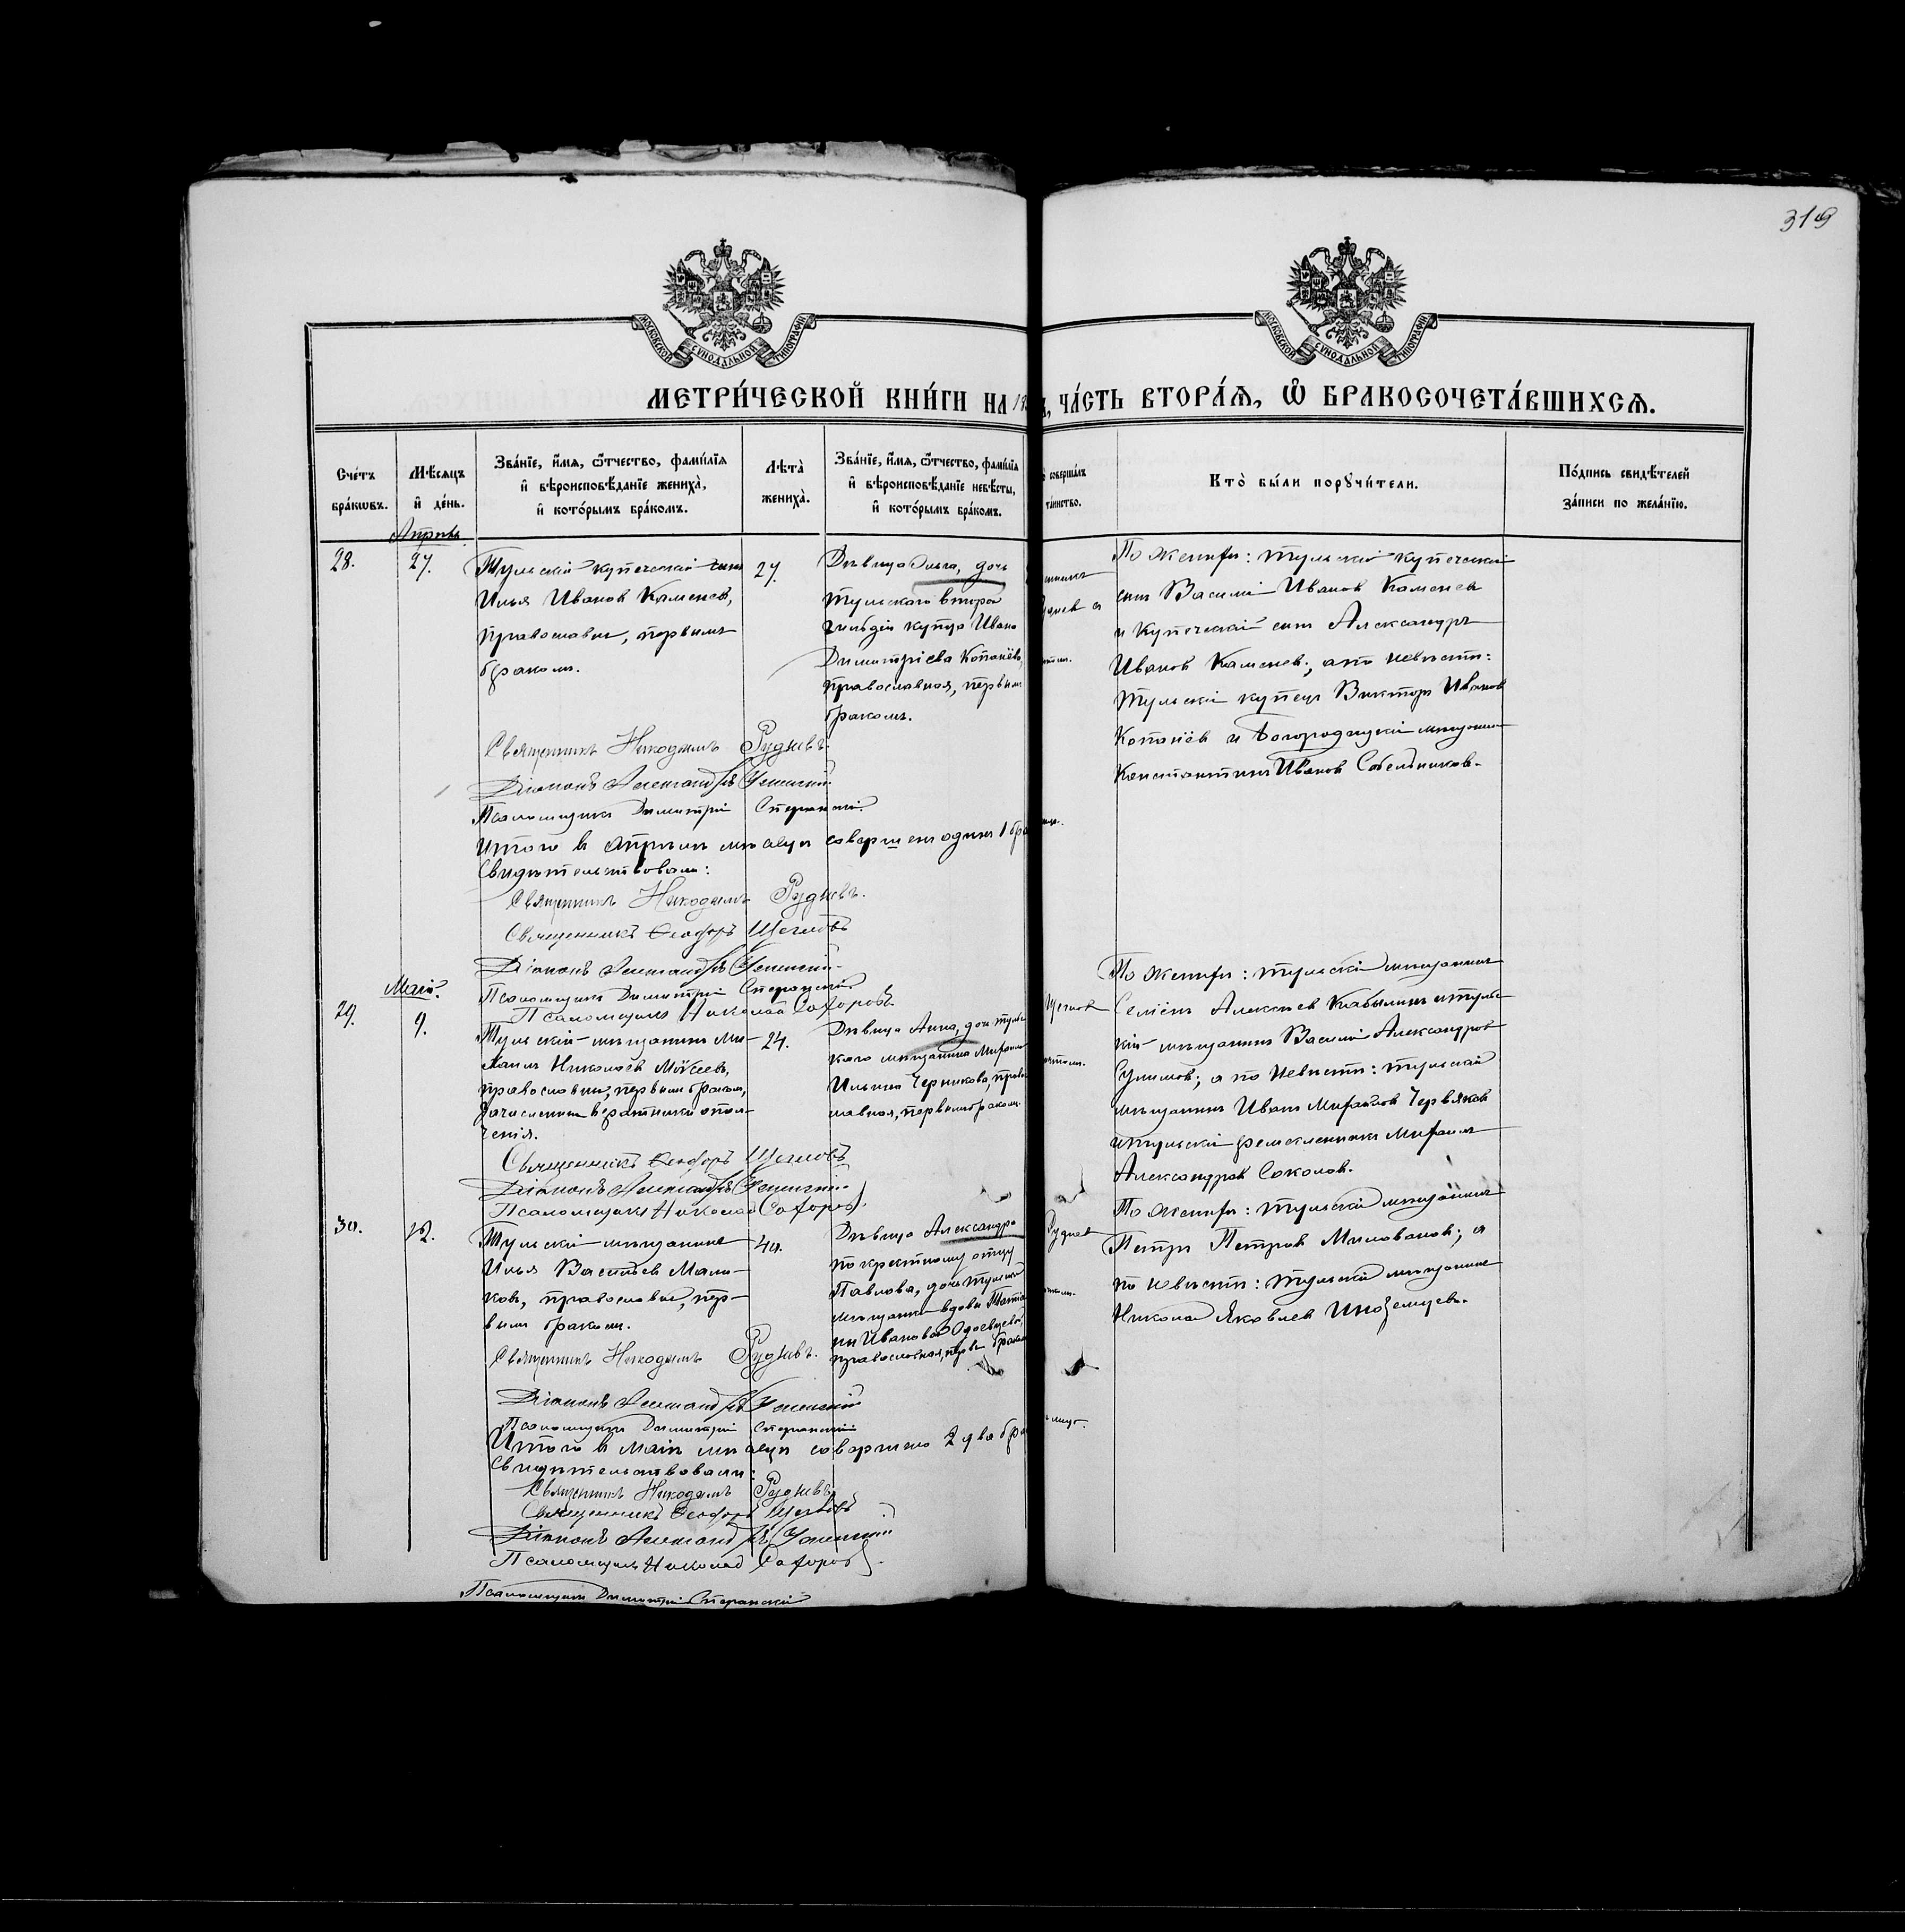 319
МОСКОВСКОЙ СУНОДАЛЬНОЙ ТИПОГРАФІИ
МОСКОВСКОЙ СУНОДАЛЬНОЙ ТИПОГРАФІИ
МЕТРИ́ЧЕСКОЙ КНИ́ГИ НА
ЧА́СТЬ ВТОРА́Ѧ, Ѽ БРАКОСОЧЕТА́ВШИХСѦ.
Сче́тъ бра́кѡвъ.
Мѣ́сѧцъ и҆ де́нь.
Зва́нїе, и҆́мѧ, ѻ҆́тчество, фами́лїѧ
и҆ вѣроисповѣ́данїе жениха̀,
и҆ кото́рымъ бра́комъ.
Лѣ́та̀ жениха̀.
Зва́нїе, и҆́мѧ, ѻ҆́тчество, фами́лїѧ
и҆ вѣроисповѣ́данїе невѣ́сты,
и҆ кото́рымъ бра́комъ.
соверша́лъ
та́инство.
Кто̀ бы́ли порꙋчи́тели.
По́дпись свидѣ́телей
за́писи по жела́нїю.
Апрѣль
28.
27.
Тульскій купеческій сынъ
Илья Ивановъ Каменевъ,
православный, первымъ
бракомъ.
27.
Дѣвица Ольга, дочь
тульскаго второй
гильдіи купца Ивана
Димитріева Копанёва,
православная, первымъ
бракомъ.
По женихѣ: тульскій купеческій
сынъ Василій Ивановъ Каменевъ
и купеческій сынъ Александръ
Ивановъ Каменевъ; а по невѣстѣ:
тульскій купецъ Викторъ Ивановъ
Копанёвъ и Богородицкій мѣщанинъ
Константинъ Ивановъ Собельниковъ.
Священникъ Никодимъ Рудневъ.
Діаконъ Александръ Успенскій
Псаломщикъ Димитрій Сперанскій.
Итого въ Апрѣлѣ мѣсяцѣ совершенъ одинъ 1
Свидѣтельствовали:
Священникъ Никодимъ Рудневъ.
Священникъ Ѳеодоръ Щегловъ
Діаконъ Александръ Успенскій
Псаломщикъ Димитрій Сперанскій
Псаломщикъ Николай Сахаровъ.
Май.
29.
9.
Тульскій мѣщанинъ Ми-
хаилъ Николаевъ
православный, первымъ бракомъ,
зачисленный въ ратники опол-
ченія.
24.
Дѣвица Анна, дочь
каго мѣщанина Михаила
Ильина
первымъ бракомъ.
Щегловъ
По женихѣ: тульскій мѣщанинъ
Семёнъ Алексѣевъ Кобылинъ и туль-
скій мѣщанинъ Василій Александровъ
а по невѣстѣ: тульскій
мѣщанинъ Иванъ Михайловъ Червяковъ
и тульскій ремесленникъ Михаилъ
Александровъ Соколовъ.
Священникъ Ѳеодоръ Щегловъ
Діаконъ Александръ Успенскій
Псаломщикъ Николай Сахаровъ.
30.
Тульскій мѣщанинъ
Илья Васильевъ Мали-
ковъ, православный, пер-
вымъ бракомъ.
Дѣвица Александра
по крестному отцу
Павлова, дочь тульской
мѣщанки вдовы Татья-
ны Ивановой Одоевцевой,
православная, первымъ бракомъ
Рудневъ
По женихѣ: тульскій мѣщанинъ
Петръ Петровъ Миловановъ; а
по невѣстѣ: тульскій мѣщанинъ
Николай Яковлевъ Иноземцевъ.
Священникъ Никодимъ Рудневъ.
Діаконъ Александръ Успенскій
Псаломщикъ Димитрій Сперанскій
Итого въ Маѣ мѣсяцѣ совершено 2 два
Свидѣтельствовали:
Священникъ Никодимъ Рудневъ
Священникъ Ѳеодоръ Щегловъ
Діаконъ Александръ Успенскій
Псаломщикъ Николай Сахаровъ.
Псаломщикъ Димитрій Сперанскій